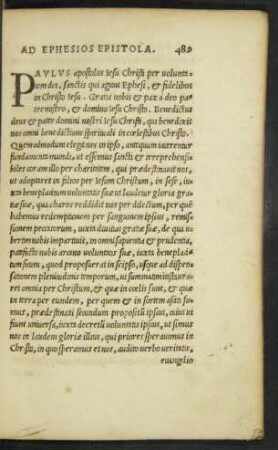 AD EPHESIOS EPISTOLA. 489
PAVLVS apostolus Iesu Christi per volunta
tem dei, sanctis qui agunt Ephesi, & fidelibus
in Christo Iesu. Gratia vobis & pax a deo pa
tre nostro, & domino Iesu Christo. Benedictus
deus & pater domini nostri Iesu Christi, qui benedixit
nos omni benedictione spirituali in cœlestibus Christo.
Quemadmodum elegit nos in ipso, antequam iacerentur
fundamenta mundi, ut essemus sancti & irreprehensi
biles coram illo per charitatem, qui prædestinauit nos,
ut adoptaret in filios per Iesum Christum, in sese, iux
ta beneplacitum voluntatis suæ ut laudetur gloria gra
tiæ suæ, qua charos reddidit nos per dilectum, per quē
habemus redemptionem per sanguinem ipsius, remis
sionem peccatorum, iuxta diuitias gratiæ suæ, de qua ui
bertim nobis impartiuit, in omni sapientia & prudentia,
patefacto nobis arcano voluntatis suæ, iuxta beneplaci
tum suum, quod proposuerat in seipso, usque ad dispen
sationem plenitudinis temporum, ut summatim instaura
ret omnia per Christum, & quæ in cœlis sunt, & quæ
in terra per eundem, per quem & in sortem asciti su
mus, prædestinati secundum propositū ipsius, cuius vi
fiunt vniuersa, iuxta decretū voluntatis ipsius, ut simus
nos in laudem gloriæ illius, qui priores sperauimus in
Christo, in quo speramus et uos, audito verbo veritatis,
euangelio